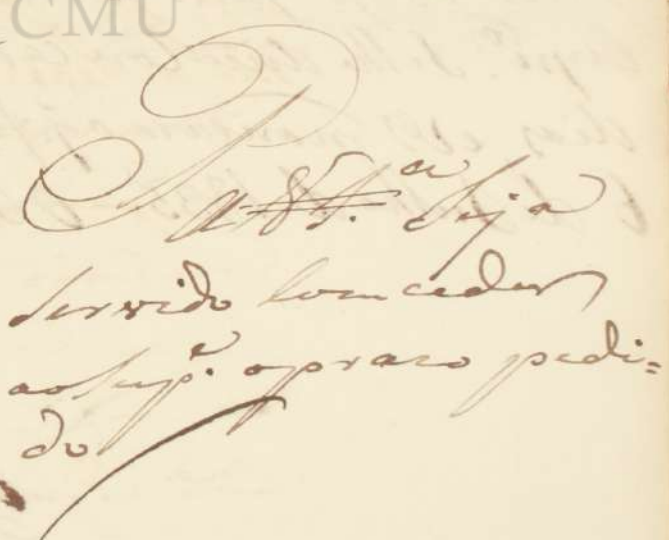 CMU
P a V S.ª Seja
Servido comceder
ao Sup.e o praso pedi=
do